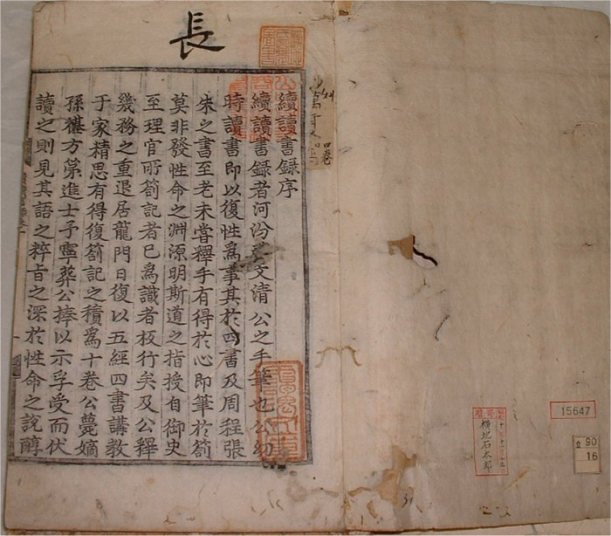 長
續讀書錄序
續讀書錄者河汾薛文清公之手筆也公幼
時讀書即以復性爲事其於四書及周程張
朱之書至老未嘗釋手有得於心即筆於箚
莫非發性命之淵源明斯道之指授自御史
至理官所箚記者已爲識者板行矣及公釋
幾務之重退居龍門日復以五經四書講教
于家精思有得復箚記之積爲十卷公薨嫡
孫方第進士予寧葬公捧以示孚受而伏
讀之則見其語之粹旨之深於性命之說醇
15647
90
16
橫地石太郎